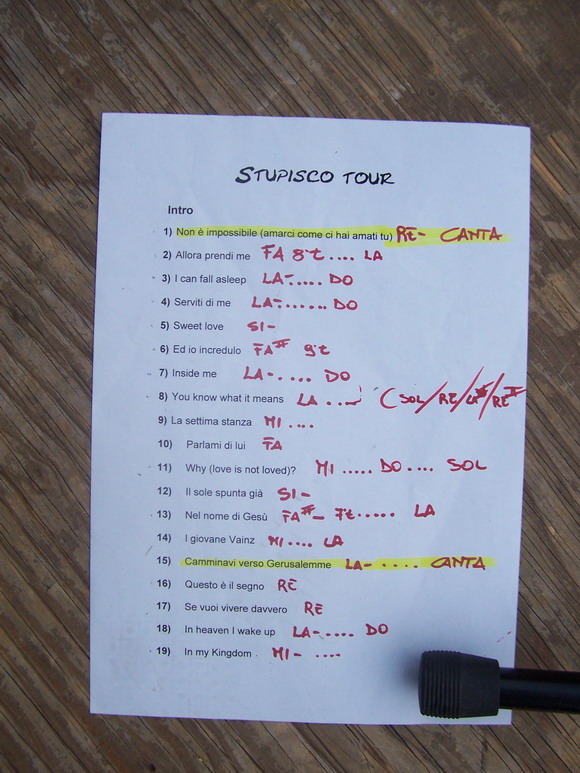 STUPISCO TOUR
Intro
1) Non è impossibile (amarci come ci hai amati tu) RE- CANTA
2) Allora prendi me FA 8't .... LA
3) I can fall asleep LA-..... DO
4) Serviti di me LA-....... DO
5) Sweet love SI-
6) Ed io incredulo FA# 9't
7) Inside me LA-..... DO
8) You know what it means LA .... (SOL/RE/LA#/RE#
9) La settima stanza MI ....
10) Parlami di lui FA
11) Why (love is not loved)? MI ..... DO .... SOL
12) Il sole spunta già SI-
13) Nel nome di Gesù FA#- 7't ..... LA
14) I giovane Vainz MI .... LA
15) Camminavi verso Gerusalemme LA- .... CANTA
16) Questo è il segno RE
17) Se vuoi vivere davvero RE
18) In heaven I wake up LA-..... DO
19) In my Kingdom MI- ....